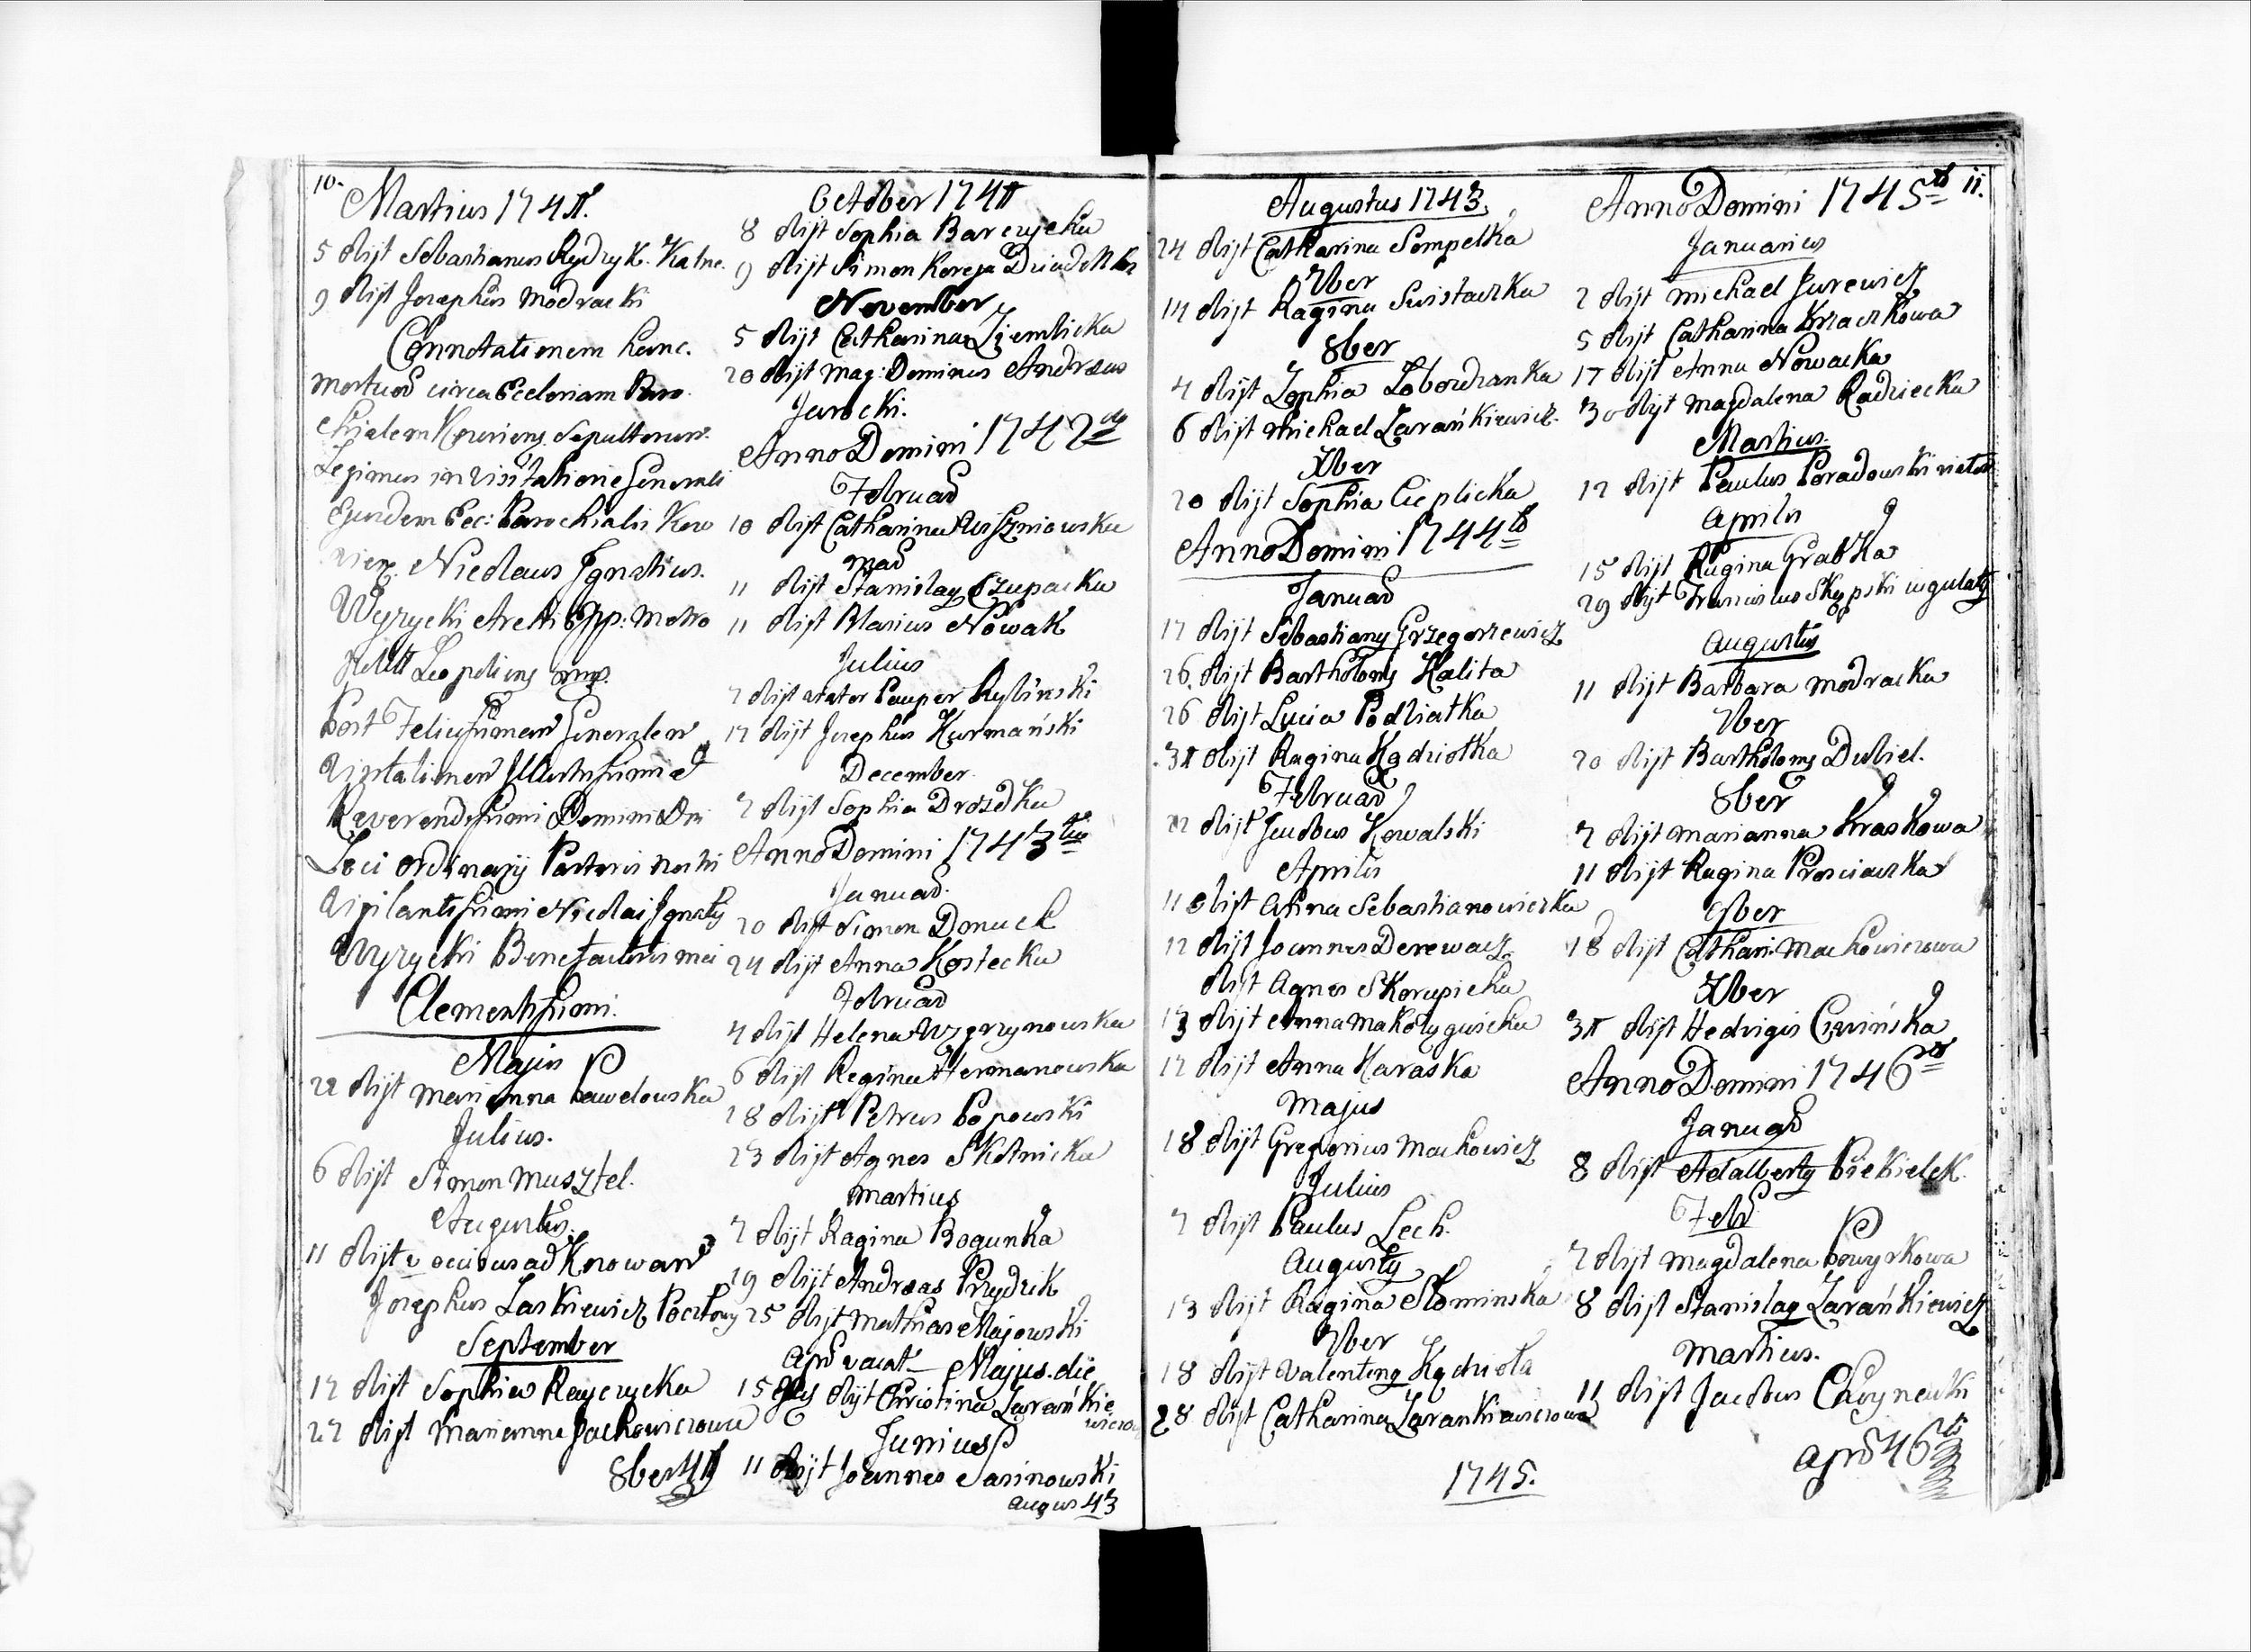 10.
Martius 1741.
5 Obijt Sebastianus Rydzyk. Kalne.
9 Obijt Josephus Modracki
Connotationem hanc.
Mortuoru circa Ecclesiam Paro
chialem Sepultorum.
Legimus in Visitatione Generali
Ejusdem Eccl: Parochialis
Nicolaus Ignatius.
Wyzycki Archi Epp: Metro
Leopoliens mp.
Post Felicissimam Generalem
Visitationem Illustrissimi et
Reverendissimi Domini Dni
Loci Ordinarij Pastoris nostri
Vigilantissimi Nicolai Ignatij
Wyzycki Benefactoris mei
Clementissimi.
Majus
22 Obijt Marianna Pawelowska
Julius.
6 Obijt Simon Musztel.
Augustus.
11 Obijt v occisus ad
Josephus Laskiewicz
September
12 Obijt Sophia Rayczycka
22 Obijt Marianna Jachowiczowa
8ber 41
October 1741
8 Obijt Sophia Barczycka
9 Obijt Simon Koreja
November
5 Obijt Catharina Ziemlicka
20 Obijt Mag: Dominus Andreas
Jarocki.
Anno Domini 1742do
Februar
10 Obijt Catharina Wiszniowska
Mad
11 Obijt Stanislaus Czupacka
11 Obijt Blasius Nowak
Julius
2 Obijt viator Pauper Rylinski
12 Obijt Josephus Kurmański
December
2 Obijt Sophia Drozdka
Anno Domini 1743tio
Januar.
20 Obijt Simon Domuch
24 Obijt Anna Kostecka
Februar
4 Obijt Helena Węgrzynowska
6 Obijt Regina Hermanowska
18 Obijt Petrus Popowski
23 Obijt Agnes Skotnicka
Martius
2 Obijt Ragina Bogunka
19 Obijt Andreas Przydzik
25 Obijt Mathias Majowski
Apr vacat Majus. die
15 Obijt Christina Zarańkie
wiczow
Junius
11 Obijt Joannes Sasinowski
Augus 43
Augustus 1743.
24 Obijt Catharina Sompelka
7ber
14 Obijt Ragina Swistaczka
8ber
4 Obijt Zophia Lobodzanka
6 Obijt Michael Zarańkiewicz.
Xber
20 Obijt Sophia Cieplicka
Anno Domini 1744to
Januar
12 Obijt Sebastiany Grzegorzewicz
26. Obijt Bartholomy Kalita
26 Obijt Lucia Podliatka
31 Obijt Ragina Kądziołka
Februar
22 Obijt Jacobus Kowalski
Aprilis
11 Obijt Anna Sebastianowiczka
12 Obijt Joannes Derewacz
Obijt Agnes Skorupicka
13 Obijt Anna Makolyguicka
12 Obijt Anna Karaska
Majus
18 Obijt Gregorius Machowicz
Julius
2 Obijt Paulus Lech.
Augusty
13 Obijt Ragina Słominska
7ber
18 Obijt Valenteny Kądzioła
28 Obijt Catharina Zarankiawiczowa
1745.
11.
Anno Domini 1745to
Januarius
2 Obijt Michael Jurewicz
5 Obijt Catharina Krzaczkowa
17 Obijt Anna Nowacka
30 Obijt Magdalena Radziecka
Martius.
12 Obijt Paulus Poradowski
Aprilis
15 Obijt Ragina Grabka
29 Obijt Franciscus Skępski iugulaty
Augustus
11 Obijt Barbara Modracka
7ber
20 Obijt Bartholomy Dubiel.
8ber
2 Obijt Marianna Kraskowa
11 Obijt Ragina Prosciaczka
9ber
18 Obijt Cathari: Machowiczowa
Xber
31 Obijt Hedvigis Czwińska
Anno Domini 1746to
Januar
8 Obijt Adalberty Piekielek.
Feb
2 Obijt Magdalena Powyskowa
8 Obijt Stanislay Zarańkiewicz
Martius.
11 Obijt Jacobus Choynacki
Apr 46to